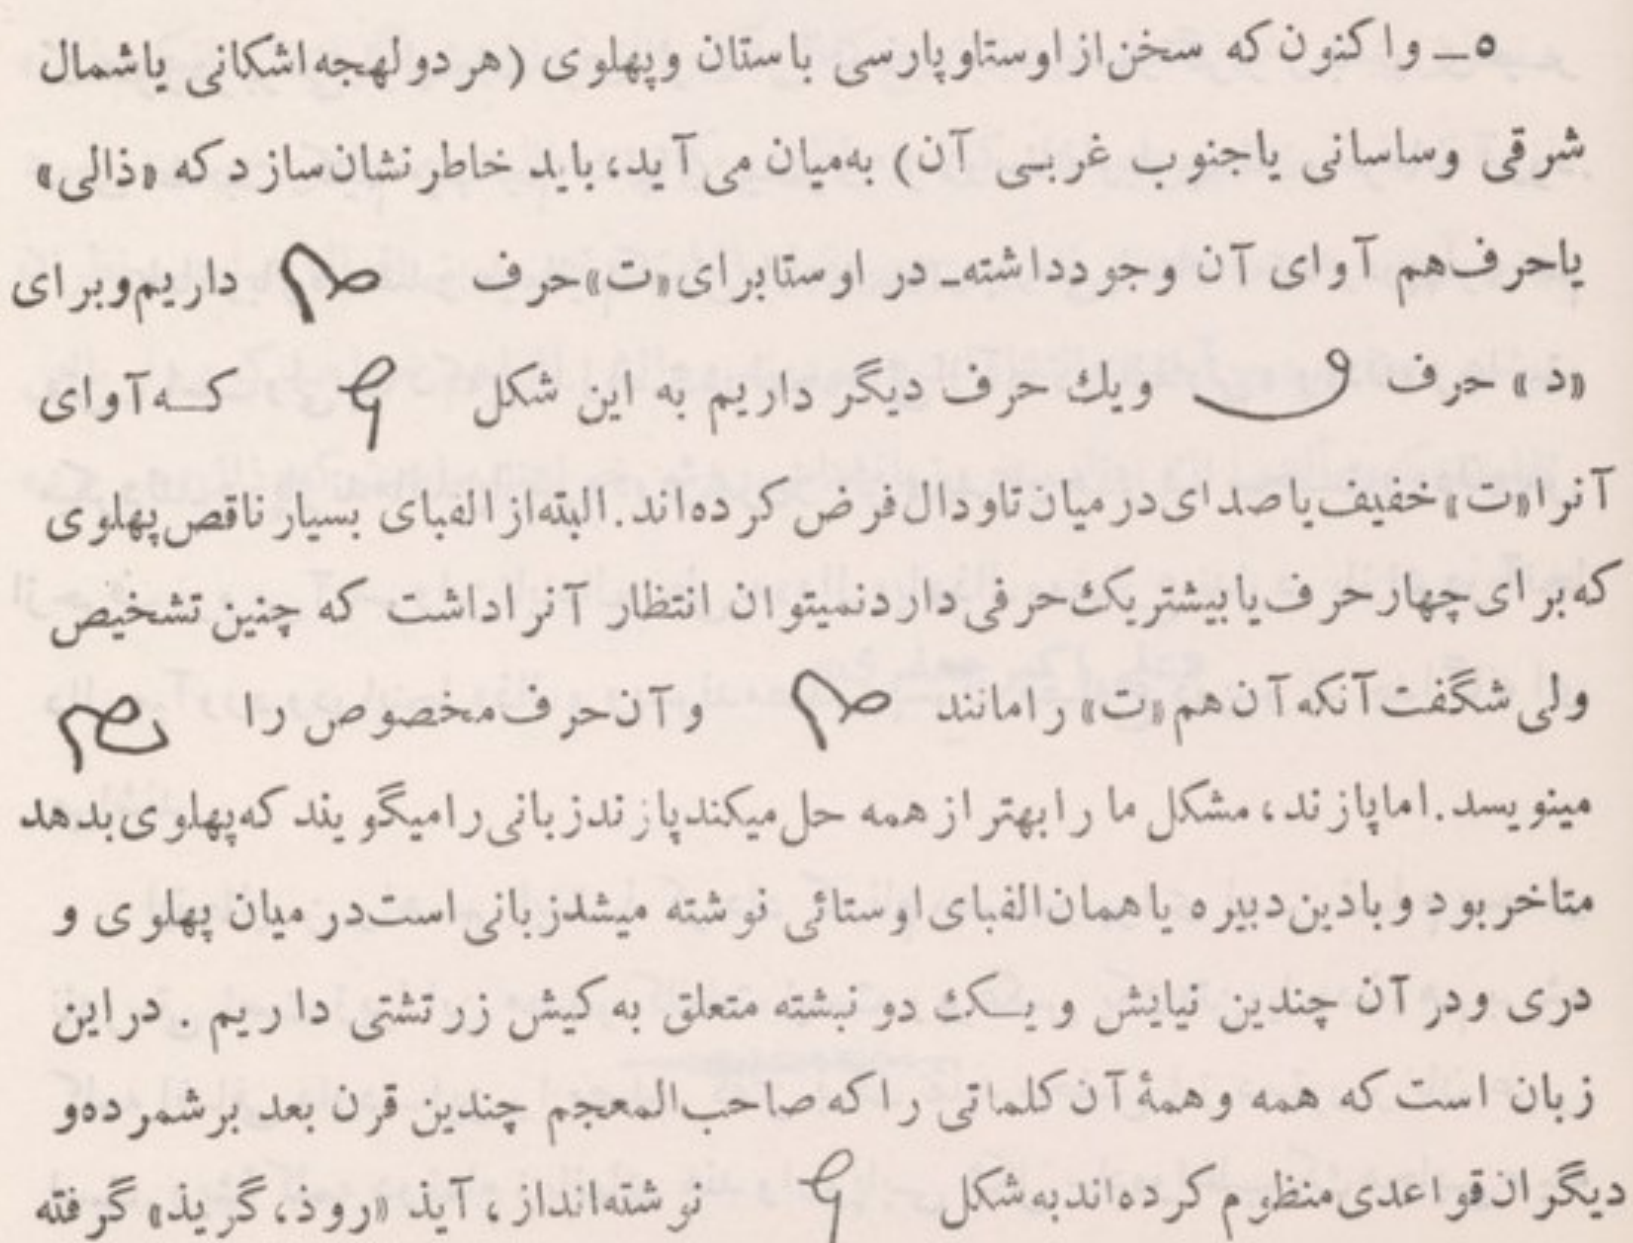 ۵ـ واکنون که سخن از اوستا و پارسی باستان و پهلوی (هر دو لهجه اشکانی یا شمال
شرقی و ساسانی یا جنوب غربی آن) به میان می آید، باید خاطر نشان سازد که «ذالی»
یا حرف هم آوای آن وجود داشته ـ در اوستا برای «ت» حرف داریم و برای
«د» حرف و یك حرف دیگر داریم به این شکل که آوای
آنرا «ت» خفیف یا صدای در میان تا و دال فرض کرده اند. البته از الفبای بسیار ناقص پهلوی
که برای چهار حرف یا بیشتر یك حرفی دارد نمیتوان انتظار آنرا داشت که چنین تشخیص
ولی شگفت آنکه آن هم «ت» را مانند و آن حرف مخصوص را
مینویسد. اما پازند، مشکل ما را بهتر از همه حل میکند پازند زبانی را میگویند که پهلوی بدهد
متاخر بود و با دین دبیره یا همان الفبای اوستائی نوشته میشد زبانی است در میان پهلوی و
دری و در آن چندین نیایش و یك دو نبشته متعلق به کیش زرتشتی داریم . در این
زبان است که همه و همهٔ آن کلماتی را که صاحب المعجم چندین قرن بعد برشمرده و
دیگران قواعدی منظوم کرده اند به شکل نوشته اند از، آیذ «روذ، گریذ» گرفته